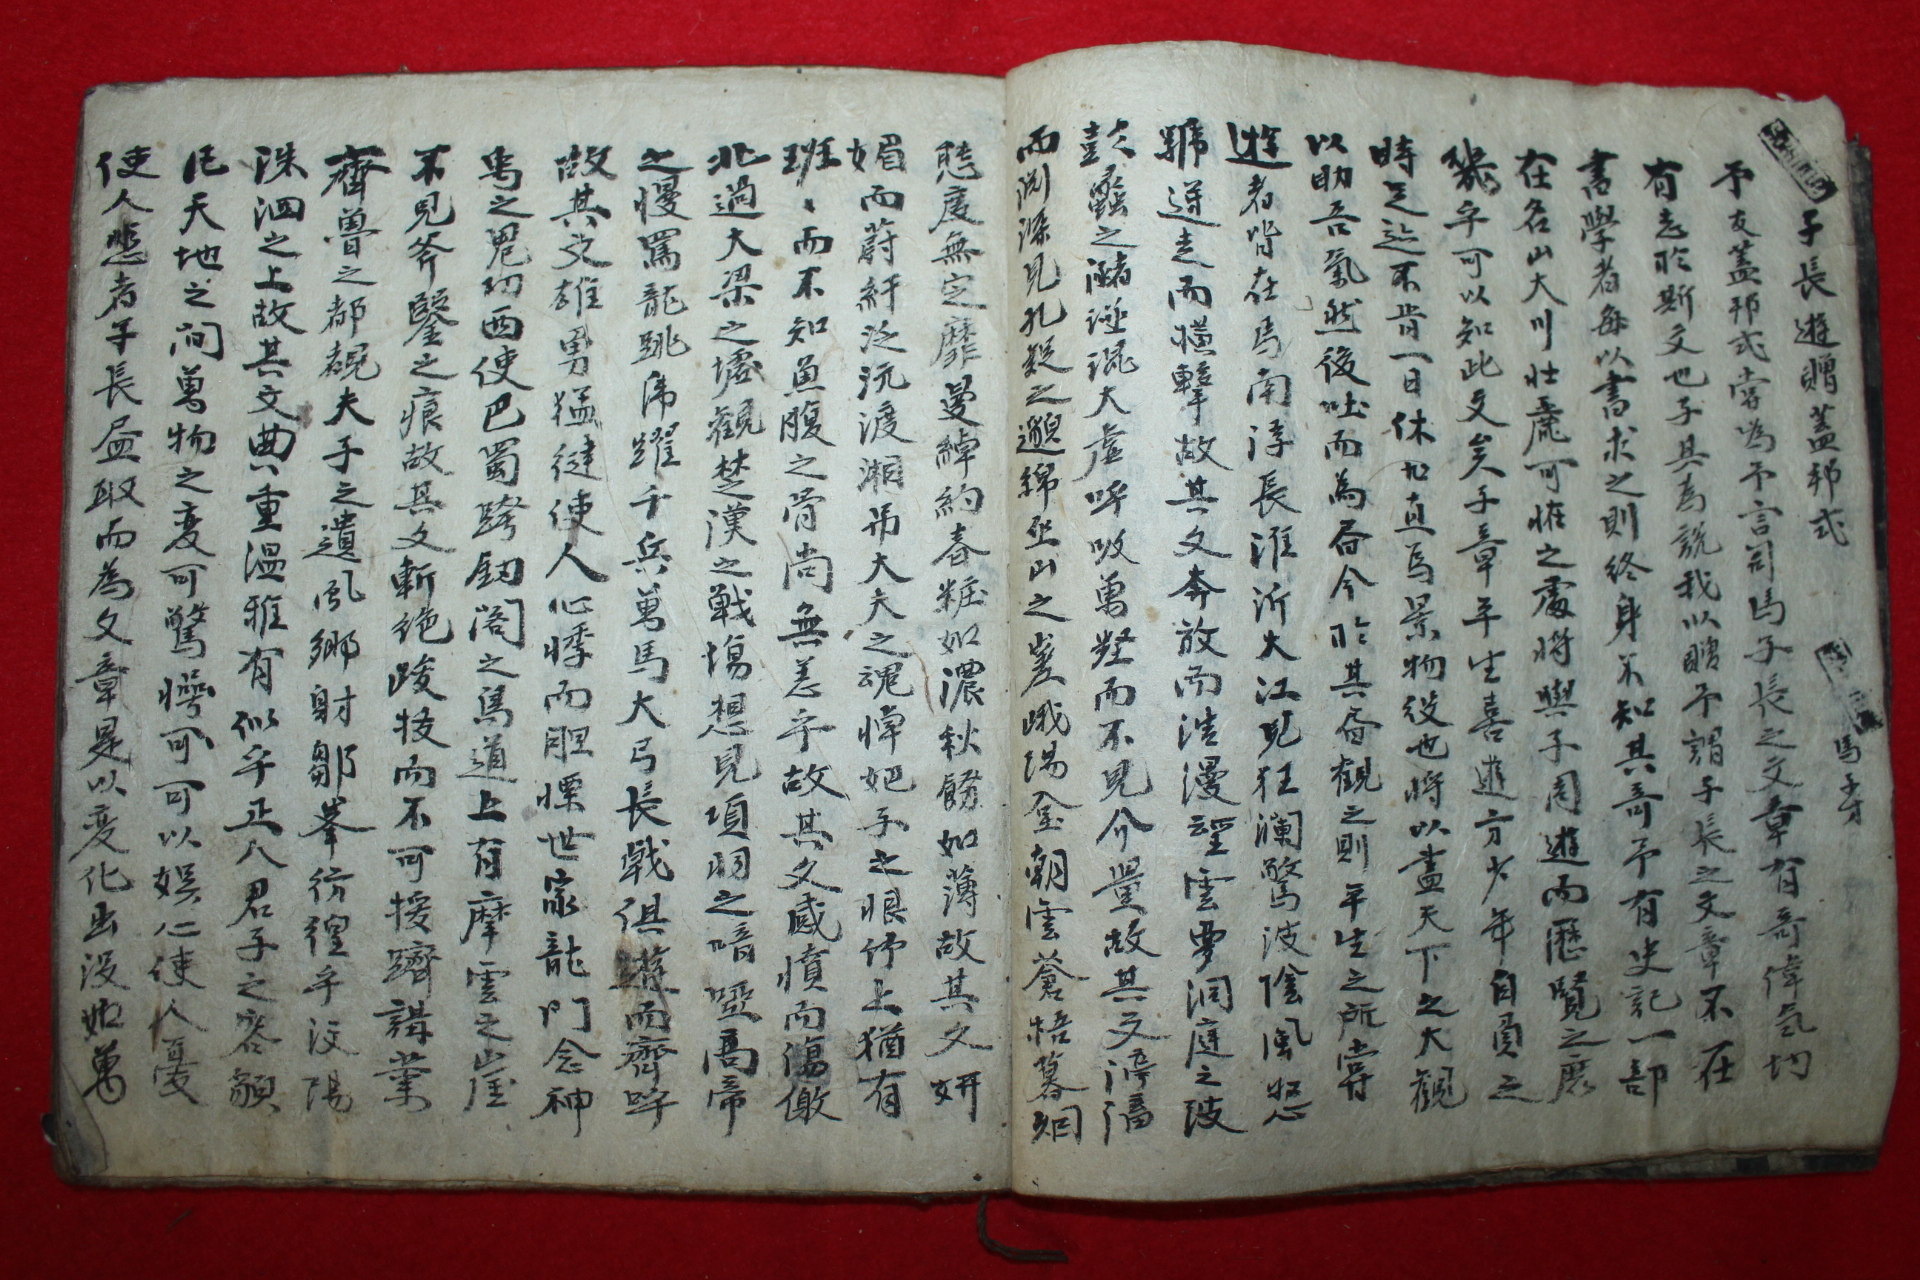 子長遊贈蓋邦式 馬才
予友蓋邦式嘗為予言司馬子長之文章有奇偉氣切
有志於斯文也子其為說我以贈予謂子長之文章不在
書學者每以書求之則終身不知其奇予有史記一部
在名山大川壯麗可怪之處將與子周遊而歷覽之庶
幾乎可以知此文矣子章平生喜遊方少年自負之
時足迹不肯一日休非直為景物役也將以盡天下之大觀
以助吾氣然後吐而為書今於其書觀之則平生之所嘗
遊者皆在焉南浮長淮泝大江見狂瀾驚波陰風怒
號逆走而橫擊故其文奔放而浩漫望雲夢洞庭之陂
彭蠡之瀦涵混大虛呼吸萬壑而不見介量故其文渟滀
而淵深見九疑之邈綿巫山之嵯峨陽台朝雲蒼梧暮烟
態度無定靡曼綽約春粧如濃秋餙如薄故其文妍
媚而蔚紆泛沅渡湘吊大夫之魂悼妃子之恨竹上猶有
班〻而不知魚腹之骨尚無恙乎故其文感憤而傷激
北過大梁之墟觀楚漢之戰塲想見項羽之喑啞高帝
之慢罵龍跳虎躍千兵萬馬大弓長戟俱遊而齊呼
故其文雄勇猛健使人心悸而胆慄世家龍門念神
禹之鬼功西使巴蜀跨劒閣之鳥道上有摩雲之崖
不見斧鑿之痕故其文斬絶峻拔而不可援躋講業
齊魯之都覩夫子之遺風鄉射鄒嶧彷徨乎汶陽
洙泗之上故其文典重溫雅有似乎正人君子之容貌
凡天地之間萬物之変可驚愕可可以娱心使人憂
使人悲者子長尽取而為文章是以変化出沒如萬